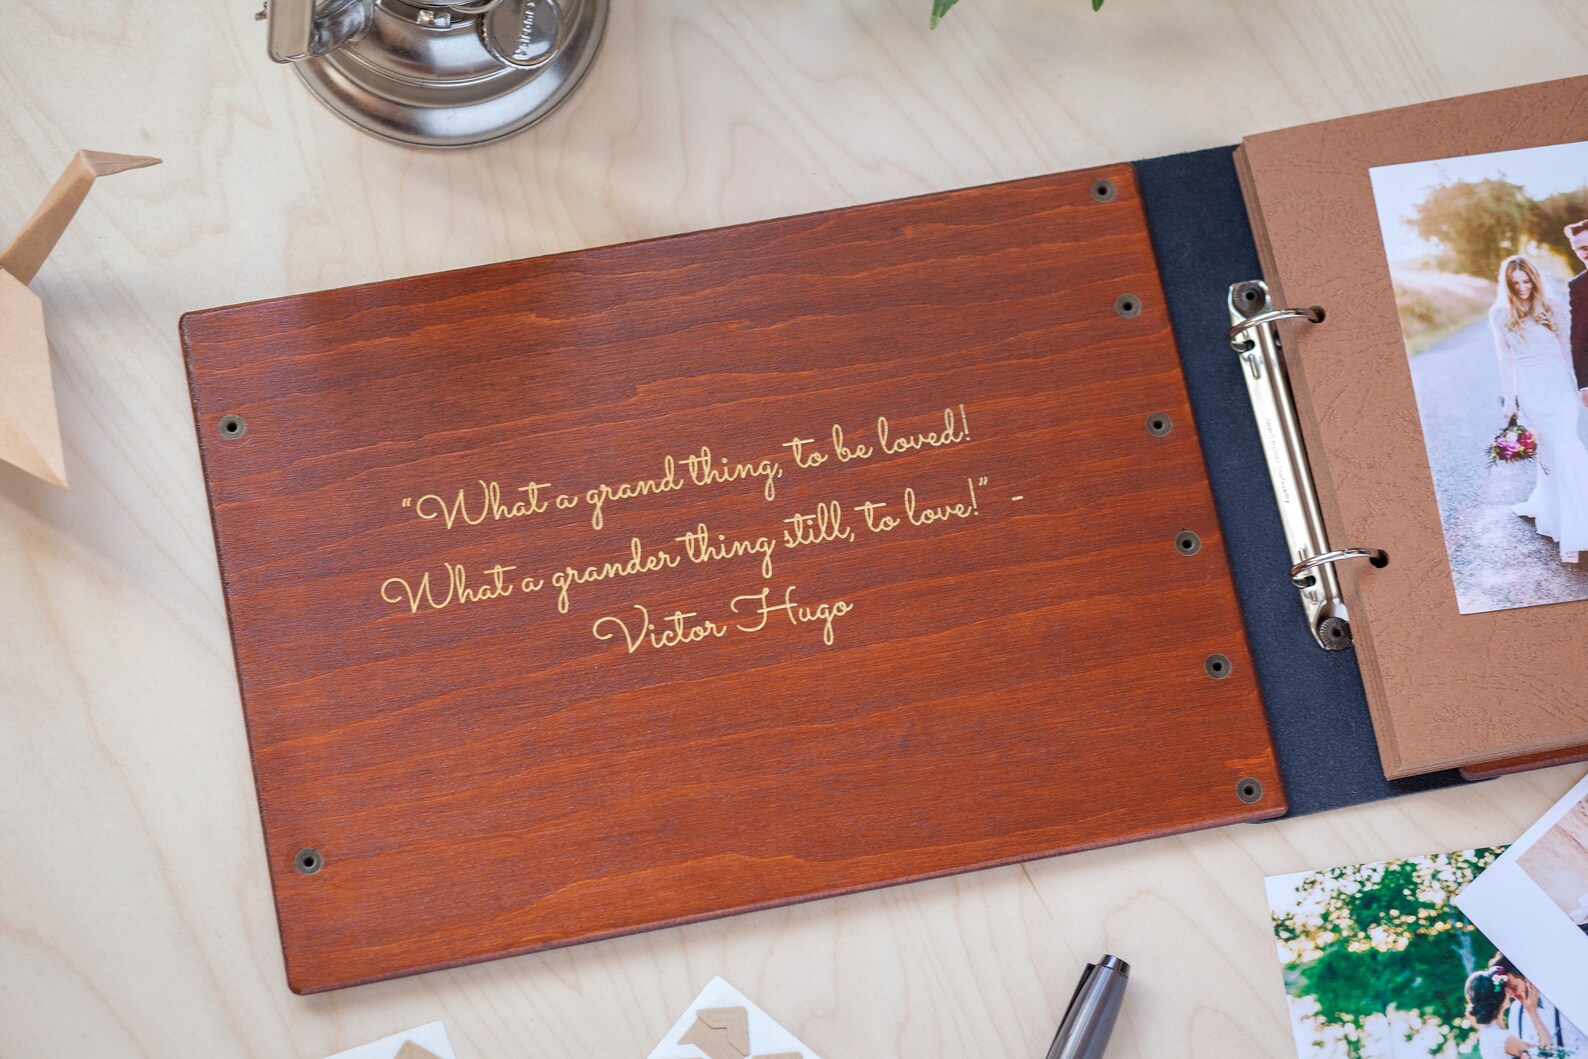 “What a grand thing, to be loved!
What a grander thing still, to love!” -
Victor Hugo